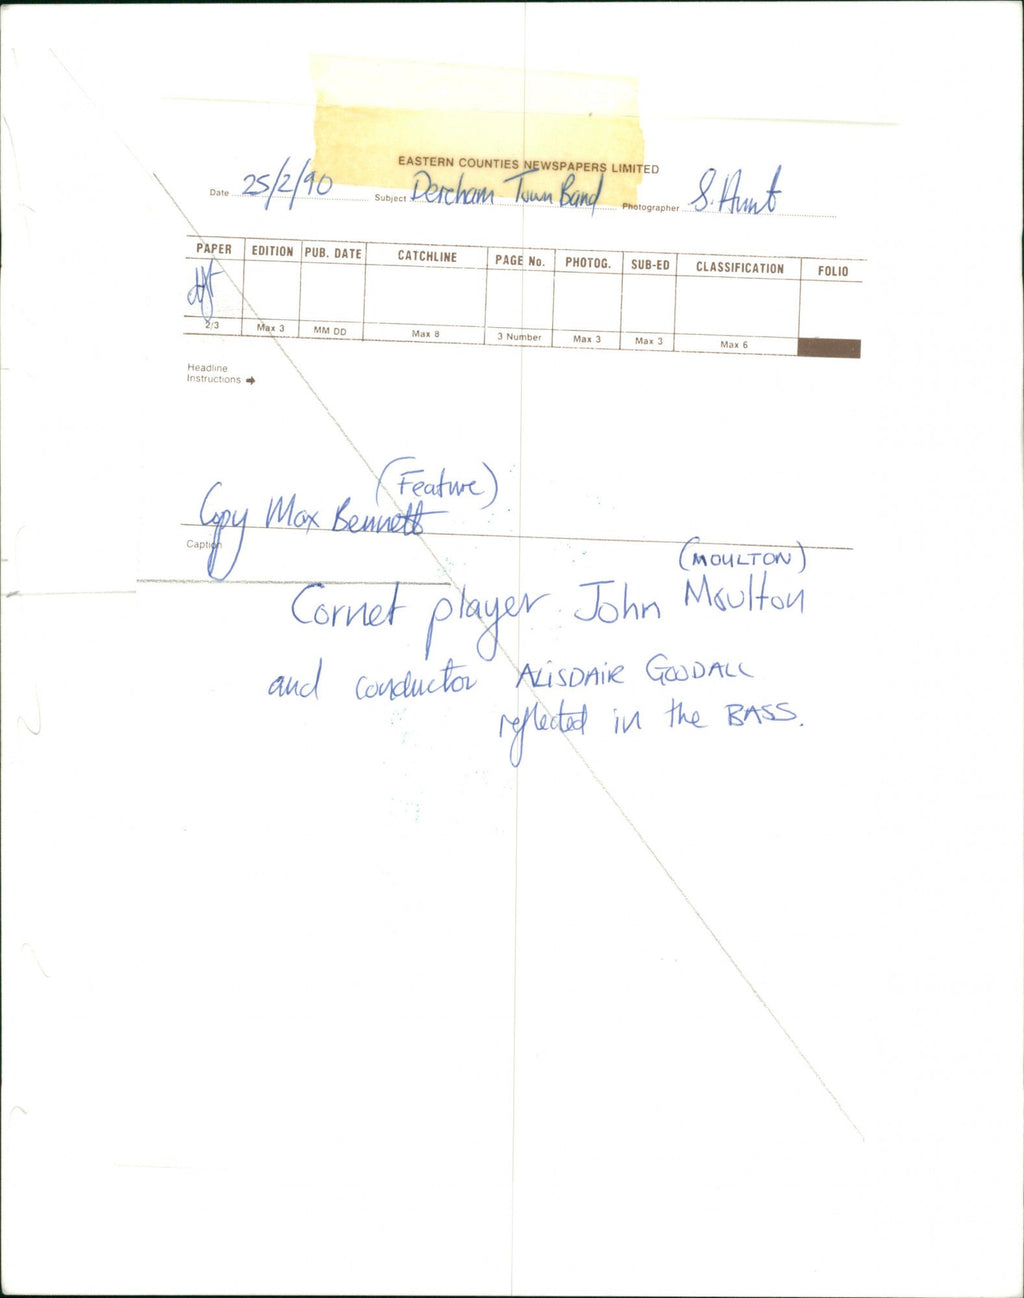 EASTERN COUNTIES NEWSPAPERS LIMITED
Date 25/2/90 Subject Dereham Town Band Photographer S. Hunt
PAPER EDITION PUB. DATE CATCHLINE PAGE No. PHOTOG. SUB-ED CLASSIFICATION FOLIO
2/3 Max 3 MM DD Max 8 3 Number Max 3 Max 3 Max 6
Headline
Instructions
(Feature)
Copy Max Bennett
Caption
(MOULTON)
Cornet player John Moulton
and conductor ALISDAIR GOODALL
reflected in the BASS.